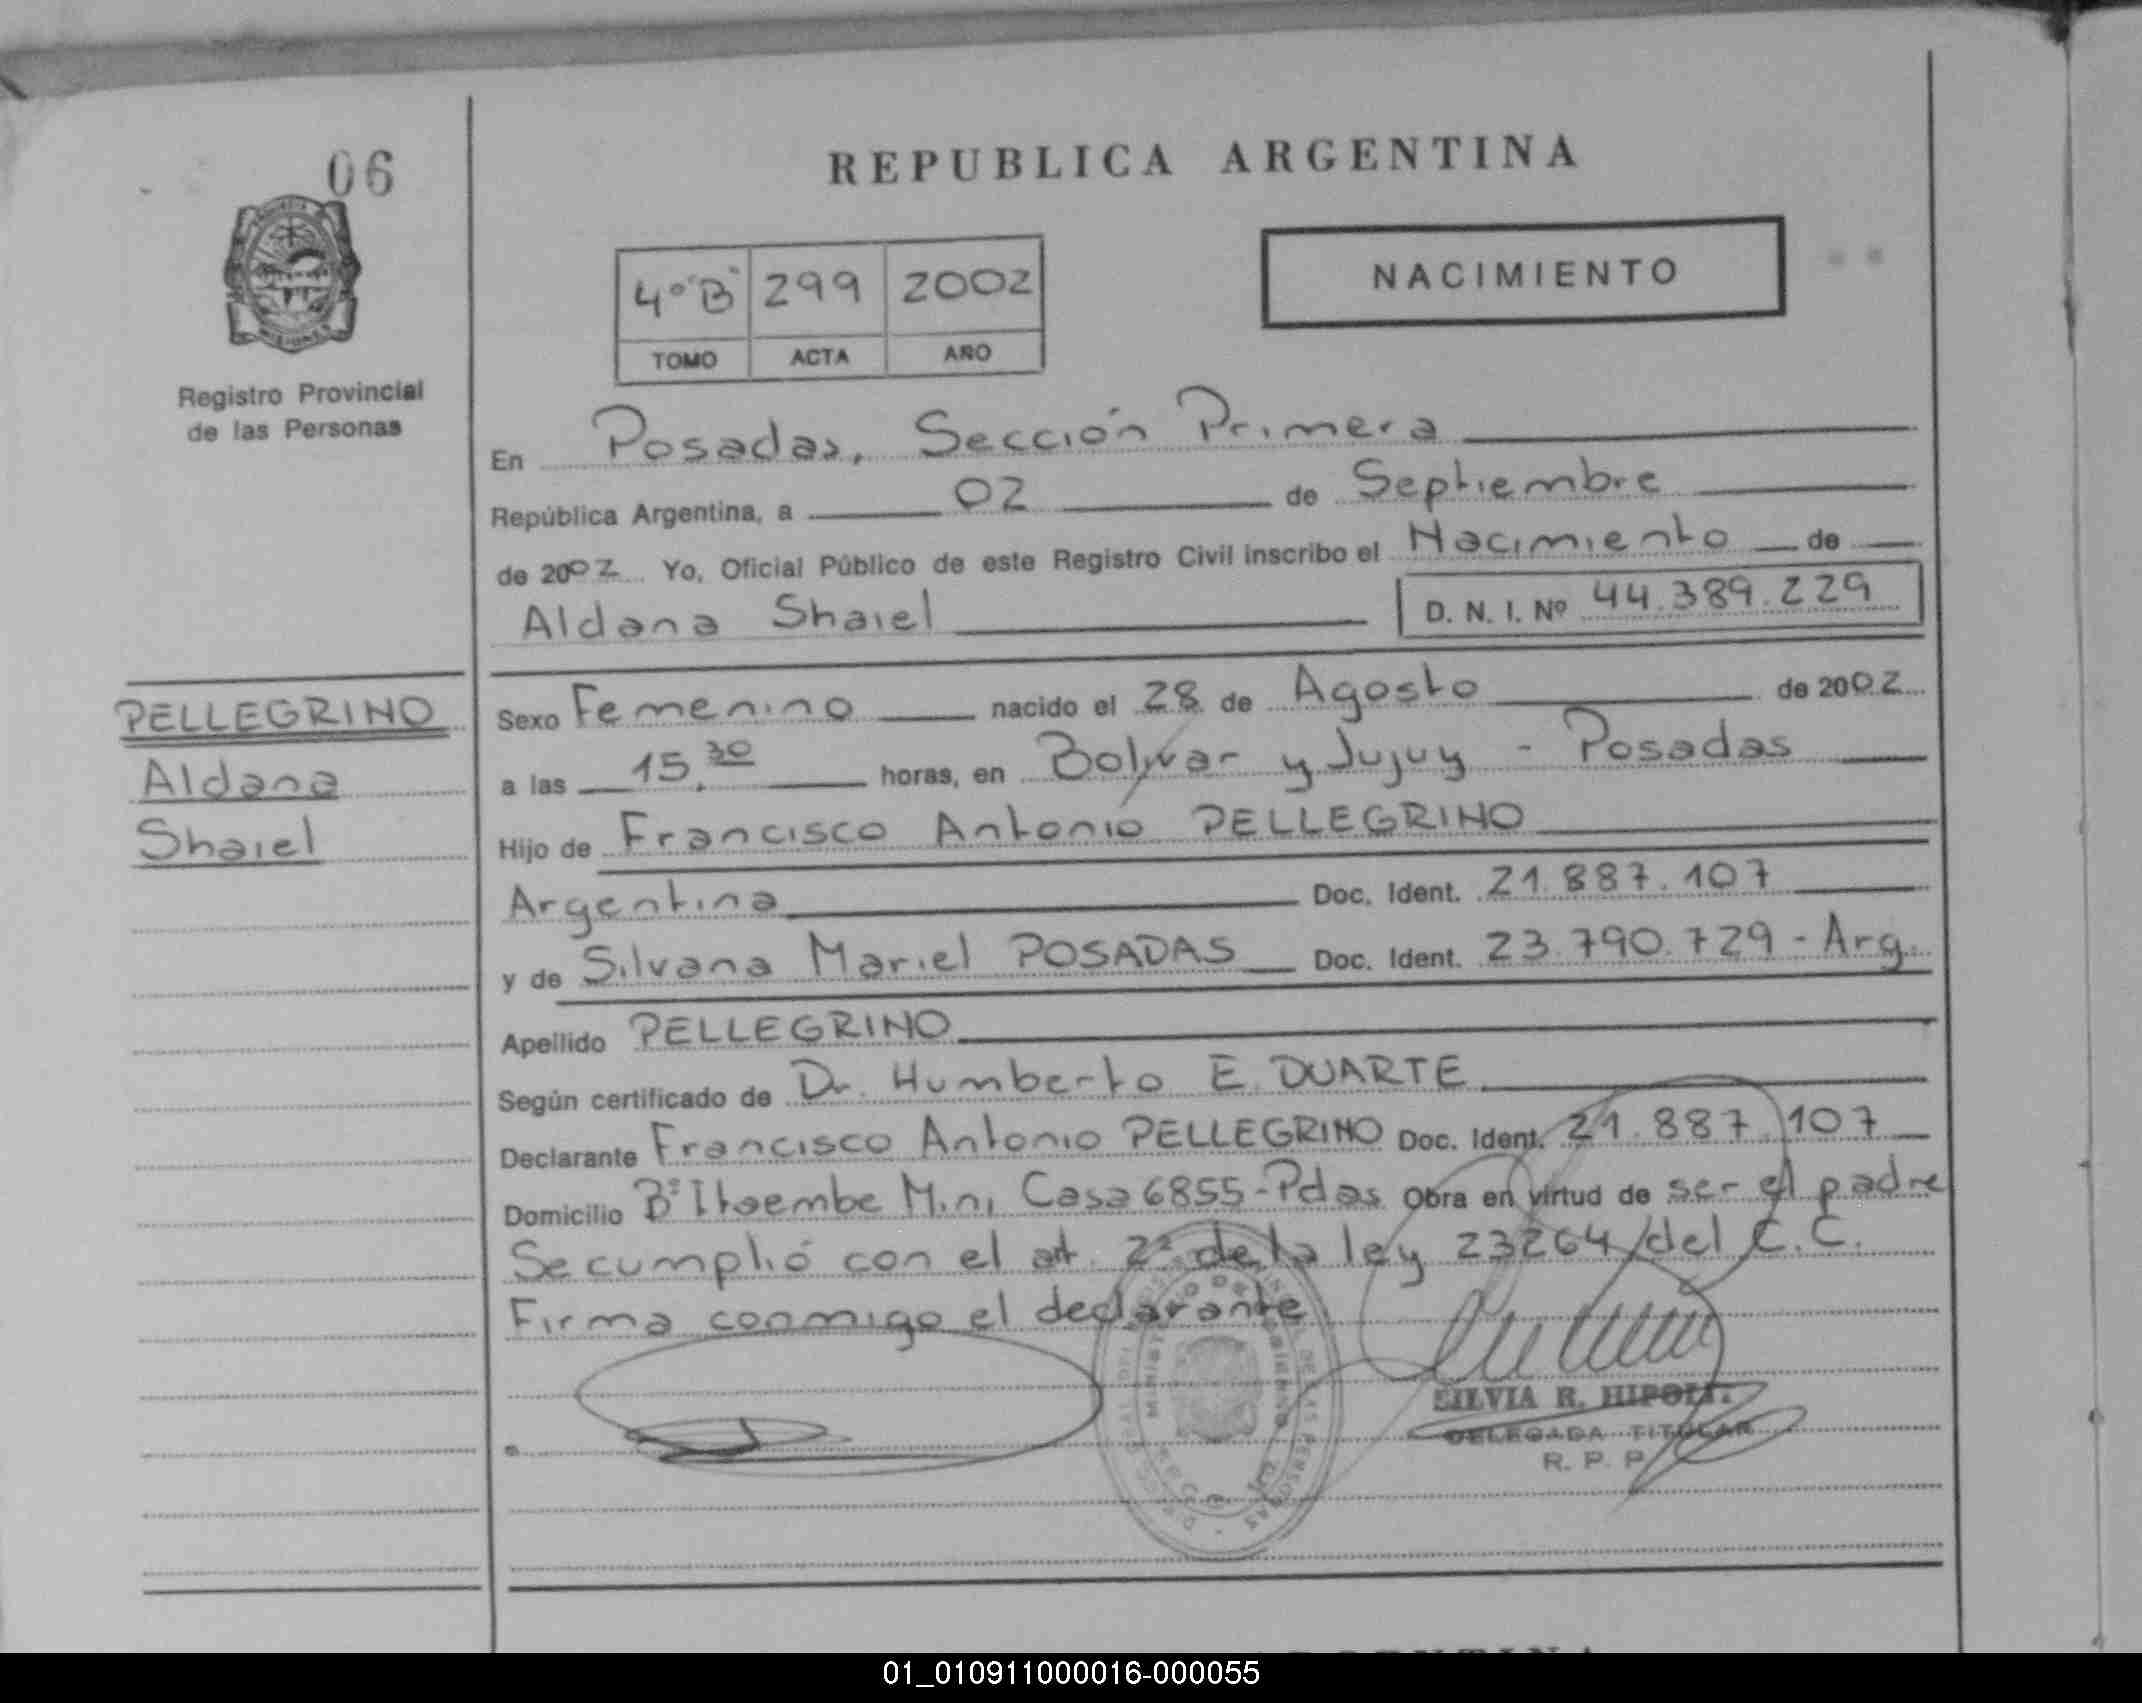 06
REPUBLICA ARGENTINA
NACIMIENTO
4º "B" 299 2002
TOMO ACTA AÑO
Registro Provincial
de las Personas
En Posadas, Sección Primera
República Argentina, a 02 de Septiembre
de 2002 Yo, Oficial Público de este Registro Civil inscribo el Nacimiento de
Aldana Shaiel D. N. I. Nº 44.389.229
PELLEGRINO
Aldana
Shaiel
Sexo Femenino nacido el 28 de Agosto de 2002
a las 15.30 horas, en Bolívar y Jujuy - Posadas
Hijo de Francisco Antonio PELLEGRINO
Argentina Doc. Ident. 21.887.107
y de Silvana Mariel POSADAS Doc. Ident. 23.790.729 - Arg.
Apellido PELLEGRINO
Según certificado de Dr. Humberto E. DUARTE
Declarante Francisco Antonio PELLEGRINO Doc. Ident. 21.887.107
Domicilio Bº Itaembe Mini Casa 6855 - Pdas Obra en virtud de ser el padre
Se cumplió con el art. 2º de la ley 23264/del C.C.
Firma conmigo el declarante
SILVIA R.
DELEGADA TITULAR
R. P. P.
01_010911000016-000055